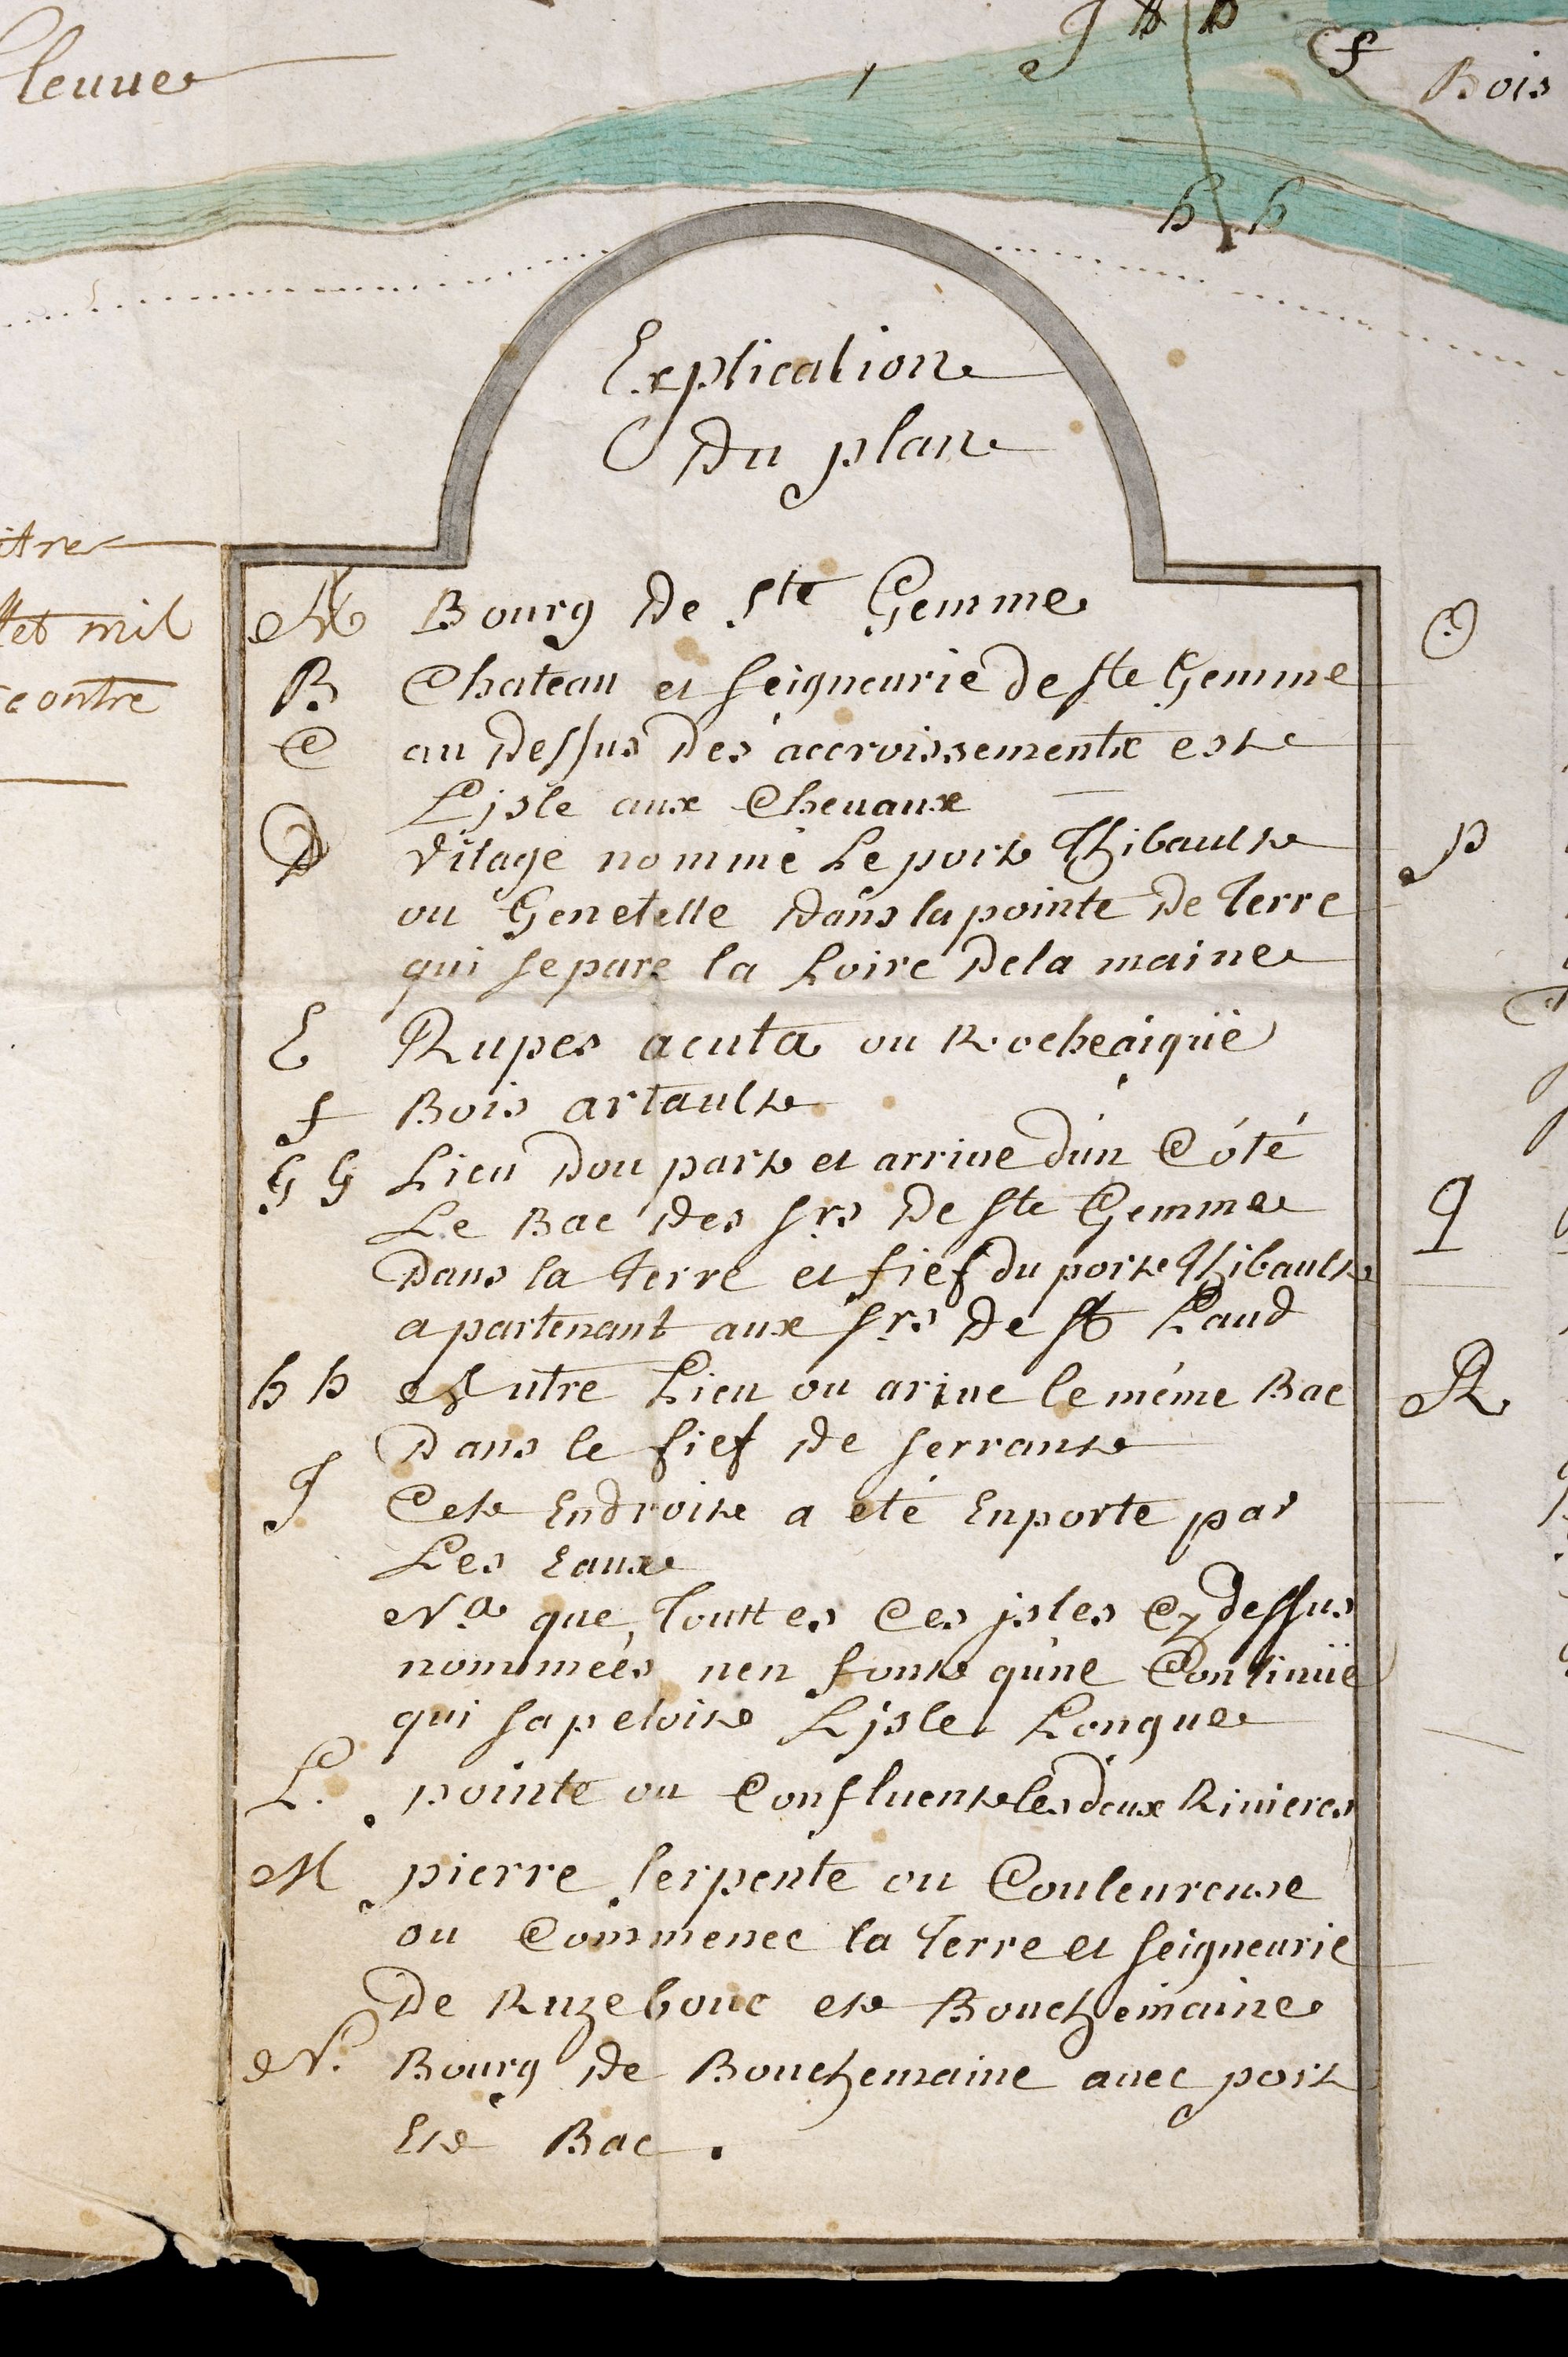 fleuve
J
H H
f
Bois
h h
itre
llet mil
contre
Explication
Du plan
A Bourg De Ste Gemme
B Chateau et Seigneurie De Ste Gemme
C au Dessus Des accroissements est
L'jsle aux Chevaux
D Vilage nommé Le port Thibault
ou Genetelle Dans la pointe De Terre
qui separe la Loire De la maine
E Rupes acuta ou Rocheaiguë
f Bois artault
G G Lieu Dou part et arrive d'un Côté
Le Bac Des Srs De Ste Gemme
Dans la Terre et fief du port Thibault
apartenant aux Srs De St Laud
h h Autre Lieu ou arive le même Bac
Dans le fief De Serrant
J Cet Endroit a eté Enporte par
Les Eaux
Na que Touttes Ces jsles Cy dessus
nommées nen font qu'ne Continüe
qui sapeloit L'jsle Longue
L. pointe ou Confluent les deux Rivieres
M pierre Serpente ou Couleureuse
ou Commence la Terre et Seigneurie
De Ruzebouc et Bouchemaine
N. Bourg De Bouchemaine avec port
Et Bac.
O
P
Q
R